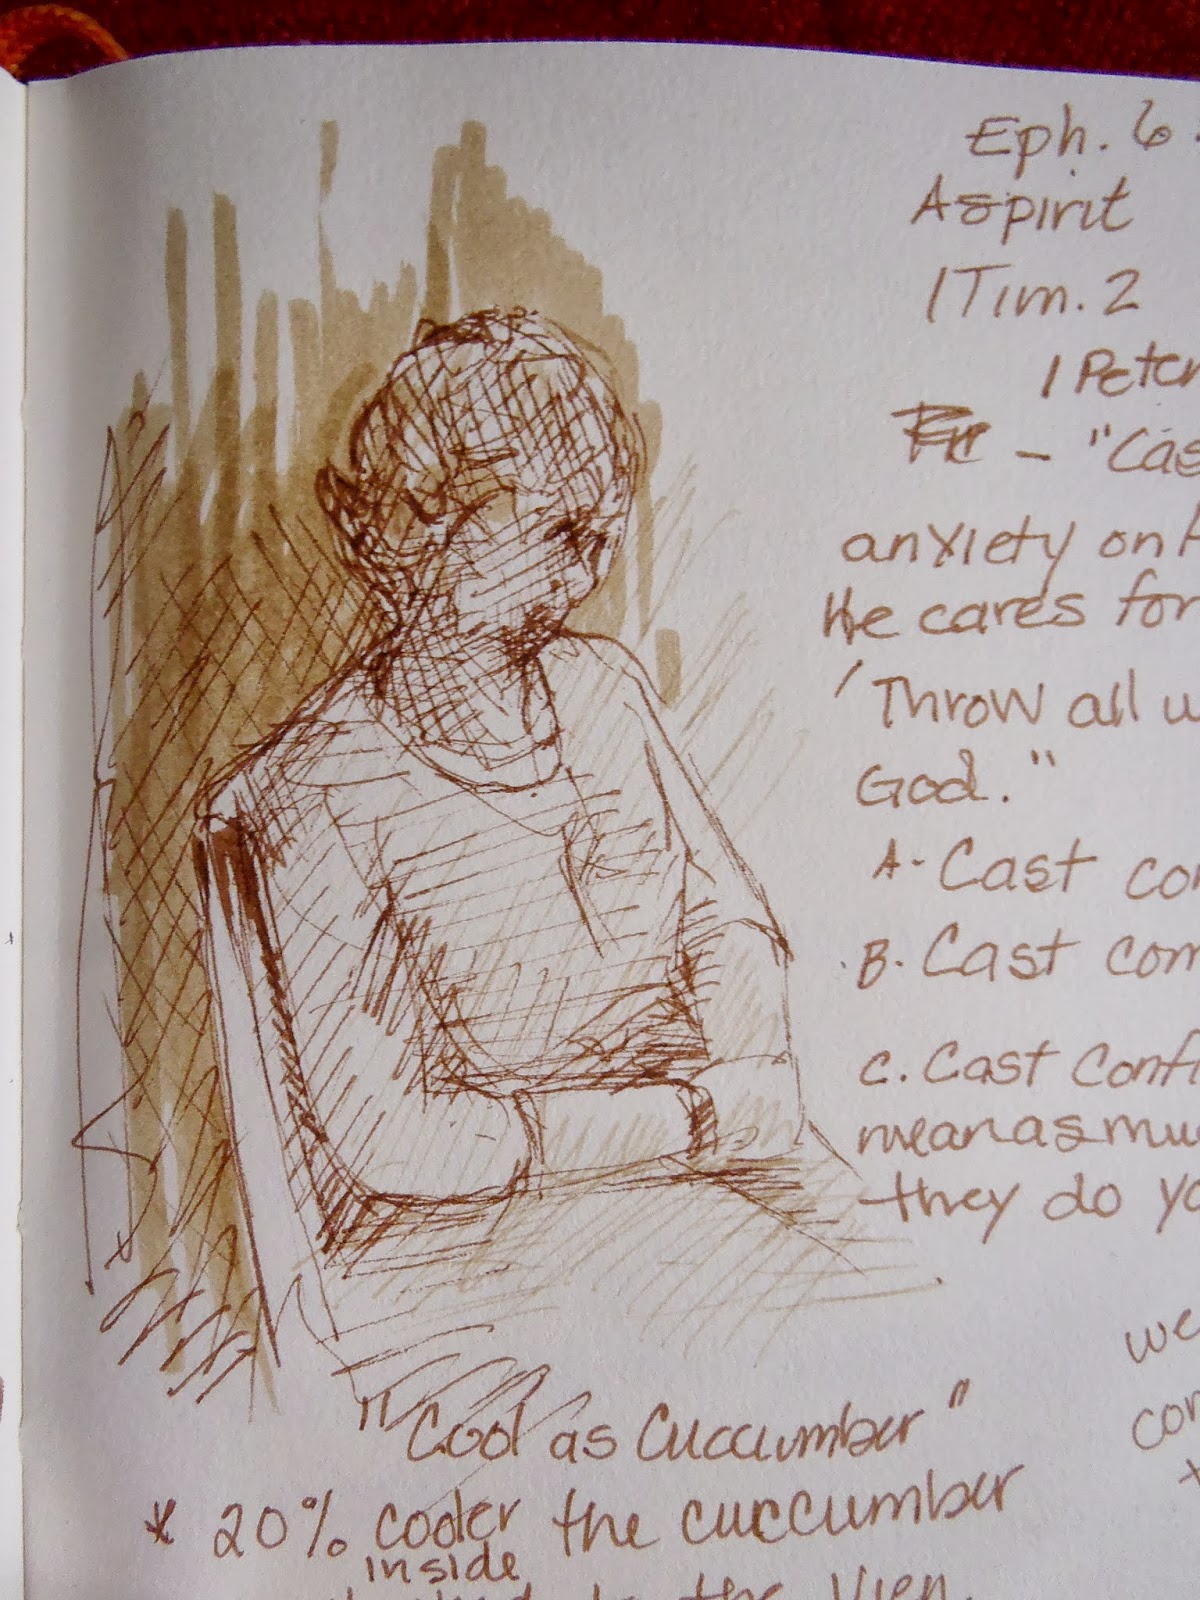 Eph. 6
A spirit
1 Tim. 2
1 Peter
- "Cas
anxiety on H
He cares for
'Throw all w
God."
A- Cast co
B. Cast com
C. Cast confi
mean as mu
they do yo
we
con
"Cool as Cuccumber"
* 20% cooler the cuccumber
inside
to the Vien.